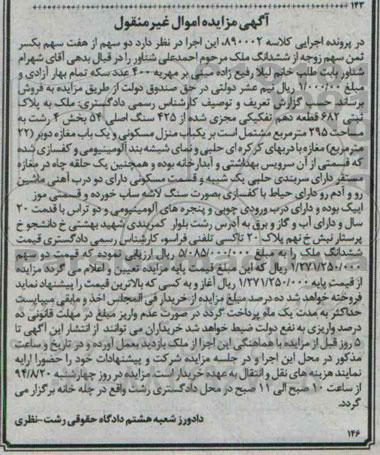 ۱۴۳
آگهی مزایده اموال غیر منقول
در پرونده اجرایی کلاسه ۸۹۰۰۰۲، این اجرا در نظر دارد دو سهم از هفت سهم بکسر
ثمن سهم زوجه از ششدانگ ملک مرحوم احمدعلی شناور را در قبال بدهی آقای شهرام
شناور بابت طلب خانم لیلا رفیع زاده مبنی بر مهریه ۴۰۰ عدد سکه تمام بهار آزادی و
مبلغ ۱/۰۰۰/۰۰۰ ریال نیم عشر دولتی در حق صندوق دولت از طریق مزایده به فروش
برساند. حسب گزارش تعریف و توصیف کارشناس رسمی دادگستری: ملک به پلاک
ثبتی ۶۸۲ قطعه دهم تفکیکی مجزی شده از ۴۲۵ سنگ اصلی ۵۴ بخش ۴ رشت به
مساحت ۲۹۵ مترمربع مشتمل است بر یکباب منزل مسکونی و یک باب مغازه دوبر (۲۲
مترمربع) مغازه با دربهای کرکره ای حلبی و نمای شیشه بند آلومینیومی و کفسازی شده
که قسمتی از آن سرویس بهداشتی و آبدارخانه بوده و همچنین یک حلقه چاه در مغازه
مستقر دارای سربندی حلبی یک شیبه و قسمت مسکونی دارای دو درب آهنی ماشین
رو و آدم رو دارای حیاط با کفسازی بصورت سنگ لاشه ساب خورده و قسمتی موز
اییک بوده و دارای درب ورودی چوبی و پنجره های آلومینیومی و دو تراس با قدمت ۲۰
سال و دارای آب و گاز و برق به آدرس رشت بلوار کمربندی شهید بهشتی خ دانشجو خ
پرستار نبش خ نهم پلاک ۲۰ تاکسی تلفنی فراسو، کارشناس رسمی دادگستری قیمت
ششدانگ ملک را به مبلغ ۵/۰۸۵/۰۰۰/۰۰۰ ریال ارزیابی نموده که قیمت دو سهم
۱/۲۷۱/۲۵۰/۰۰۰ ریال که این مبلغ قیمت پایه مزایده تعیین و اعلام می گردد مزایده
از قیمت پایه ۱/۲۷۱/۲۵۰/۰۰۰ ریال آغاز و به کسی که بالاترین قیمت را پیشنهاد نماید
فروخته خواهد شد ده درصد مبلغ مزایده از خریدار فی المجلس اخذ و مابقی میبایست
حداکثر به مدت یک ماه پرداخت گردد در صورت عدم واریز مبلغ در مهلت قانونی ده
درصد واریزی به نفع دولت ضبط خواهد شد خریداران می توانند از انتشار این آگهی تا
۵ روز قبل از مزایده با هماهنگی این اجرا از ملک بازدید بعمل آورده و در تاریخ و ساعت
مذکور در محل این اجرا و در جلسه مزایده شرکت و پیشنهادات خود را حضورا ارایه
نمایند هزینه های نقل و انتقال به عهده خریدار است. مزایده در روز چهارشنبه ۹۴/۸/۲۰
از ساعت ۱۰ صبح الی ۱۱ صبح در محل دادگستری رشت واقع در چله خانه برگزار می
گردد.
دادورز شعبه هشتم دادگاه حقوقی رشت-نظری
۱۴۶